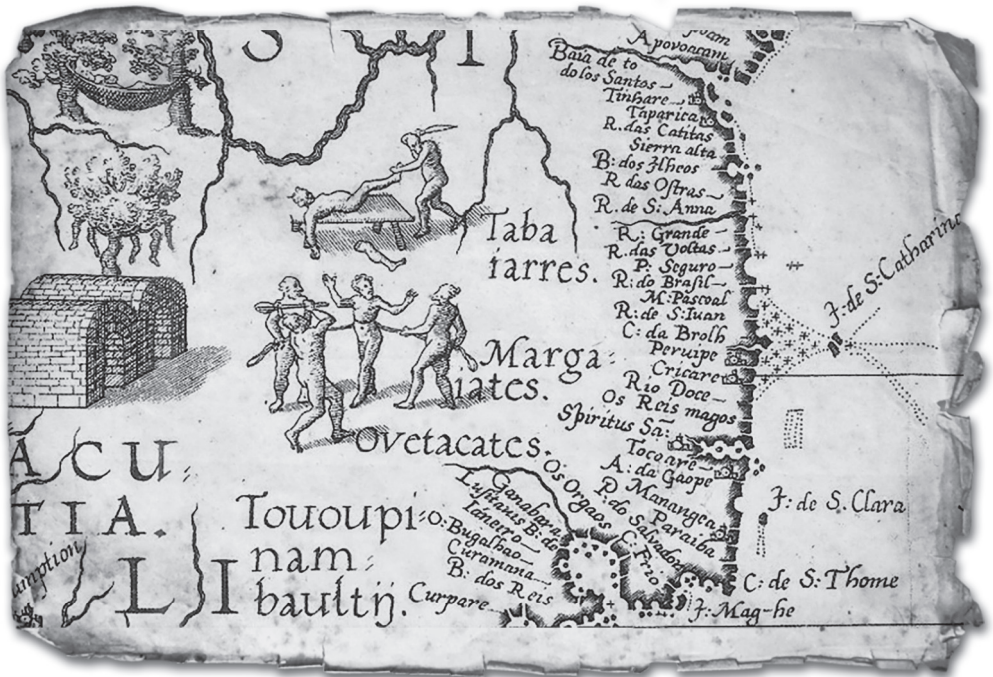 Apovoacam
Baia de to
dolos Santos
Tinhare
Taparica
R. das Catitas
Sierra alta
B: dos Ilheos
R das Ostras
R. de S: Anna
R: Grande
R. das Voltas
P. Seguro
R: do Brasil
M: Pascoal
R: de S: Iuan
C: da Brolh
Peruipe
Cricare
Rio Doce
Os Reis magos
Spiritus Sa:
Tocoare
A: da Gaope
P. Mangea
Paraiba
P: do Salvador
C. Frio
Os Orgaos
Ganabara
Lusitanis B: de
Ianero
o: Bugalhao
Curamana
B: dos Reis
Curpare
J: de S: Catharina
J: de S. Clara
C: de S: Thome
J: Mag-he
Taba
iarres.
Marga:
iates.
Ovetacates.
Tououpi:
nam:
baultij.
A CU:
TIA.
umption
L I